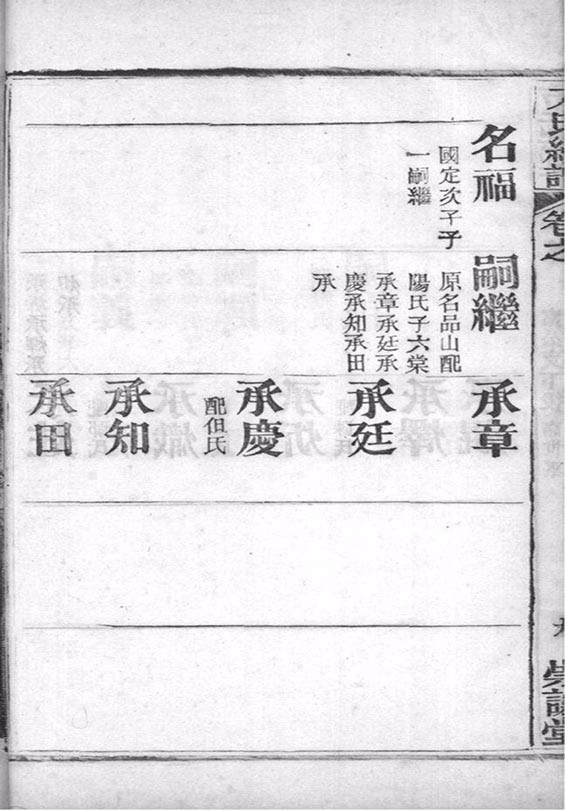 卷之
名福
國定次子子
一嗣繼
嗣繼
原名品山配
陽氏子六棠
承章承廷承
慶承知承田
承
承章
承廷
承慶
配但氏
承知
承田